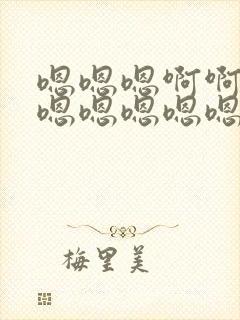 嗯嗯嗯啊啊
嗯嗯嗯嗯嗯
梅里美